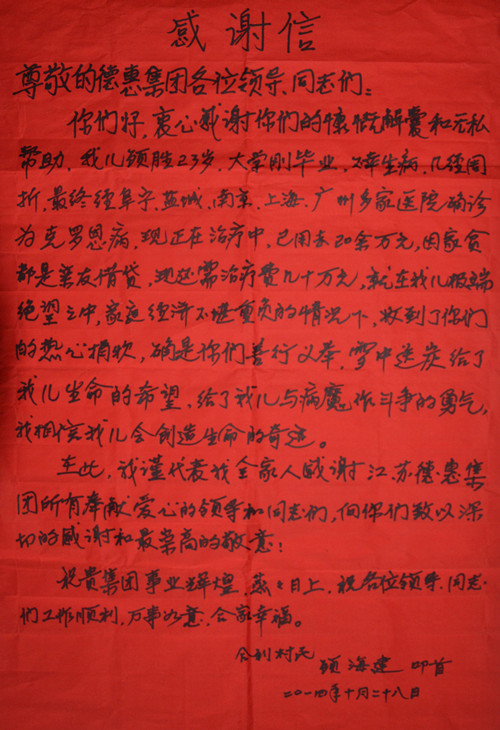 感谢信
尊敬的德惠集团各位领导、同志们：
你们好，衷心感谢你们的慷慨解囊和无私
帮助，我儿顾胜23岁，大学刚毕业，不幸生病，几经周
折，最终经阜宁、盐城、南京、上海、广州多家医院确诊
为克罗恩病，现正在治疗中，已用去20余万元，因家贫
都是亲友借贷，现还需治疗费几十万元，就在我儿极端
绝望之中，家庭经济不堪重负的情况下，收到了你们
的热心捐款，确是你们善行义举，雪中送炭给了
我儿生命的希望，给了我儿与病魔作斗争的勇气，
我相信我儿会创造生命的奇迹。
在此，我谨代表我全家人感谢江苏德惠集
团所有奉献爱心的领导和同志们，向你们致以深
切的感谢和最崇高的敬意！
祝贵集团事业辉煌，蒸々日上，祝各位领导、同志
们工作顺利，万事如意，合家幸福。
合利村民
顾海建 叩首
二〇一四年十月二十八日